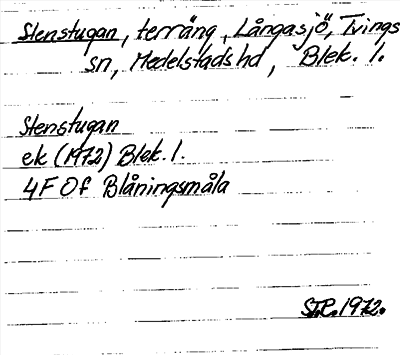 Stenstugan, terräng, Långasjö, Tvings
sn, Medelstads hd, Blek. l.
Stenstugan
ek (1972) Blek. l.
4F Of Blåningsmåla
1972.